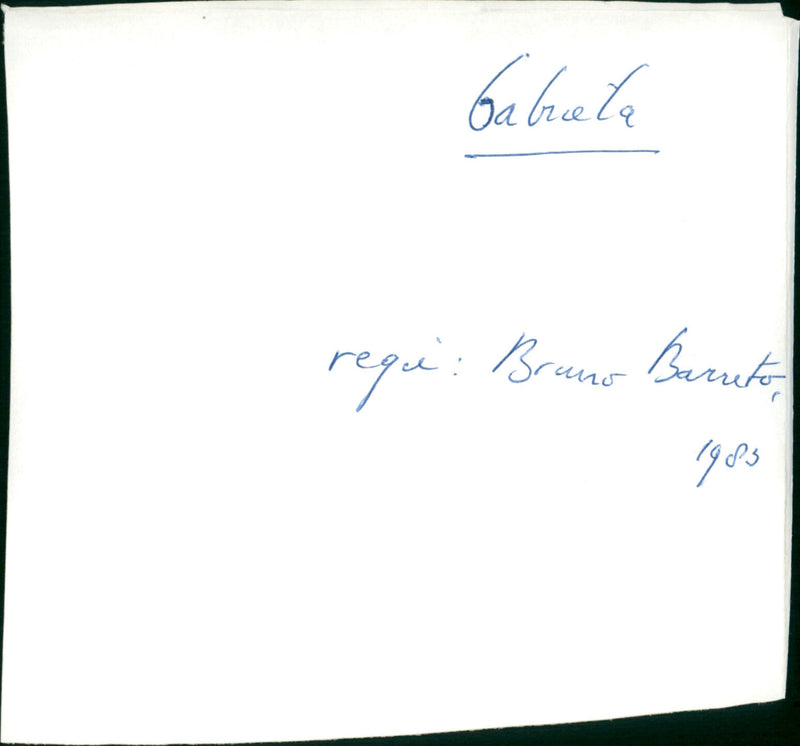 Gabriela
regie: Bruno Barreto,
1983